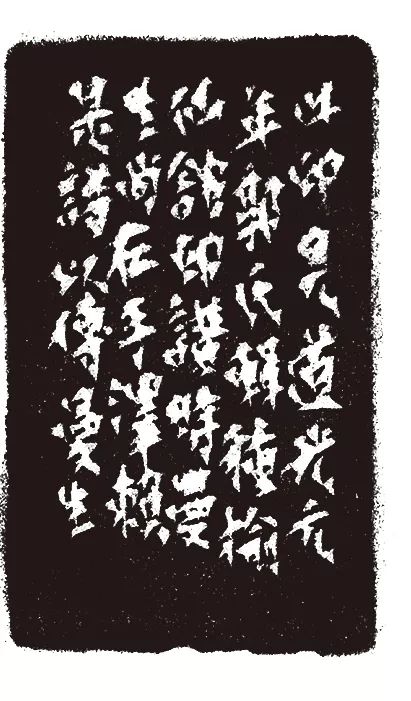 此印見道光元
年郭氏輯種榆
仙館印譜時曼
生尚在手澤賴
是譜以傳曼生